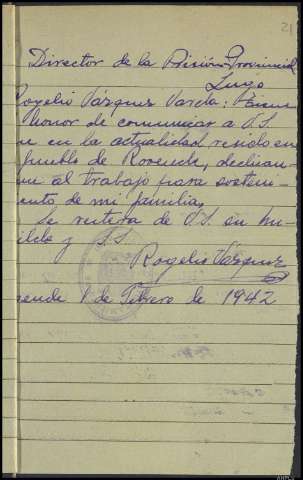 21
Director de la Prisión Provincial
Lugo
Rogelio Vázquez Varela: Tiene
honor de comunicar a V.S.
ue en la actualidad resido en
pueblo de Rosende, dedican-
me al trabajo para sosteni-
ento de mi familia,
Se reitera de V.S. su hu-
milde y S.S.
Rogelio Vázquez
sende 1 de Febrero de 1942